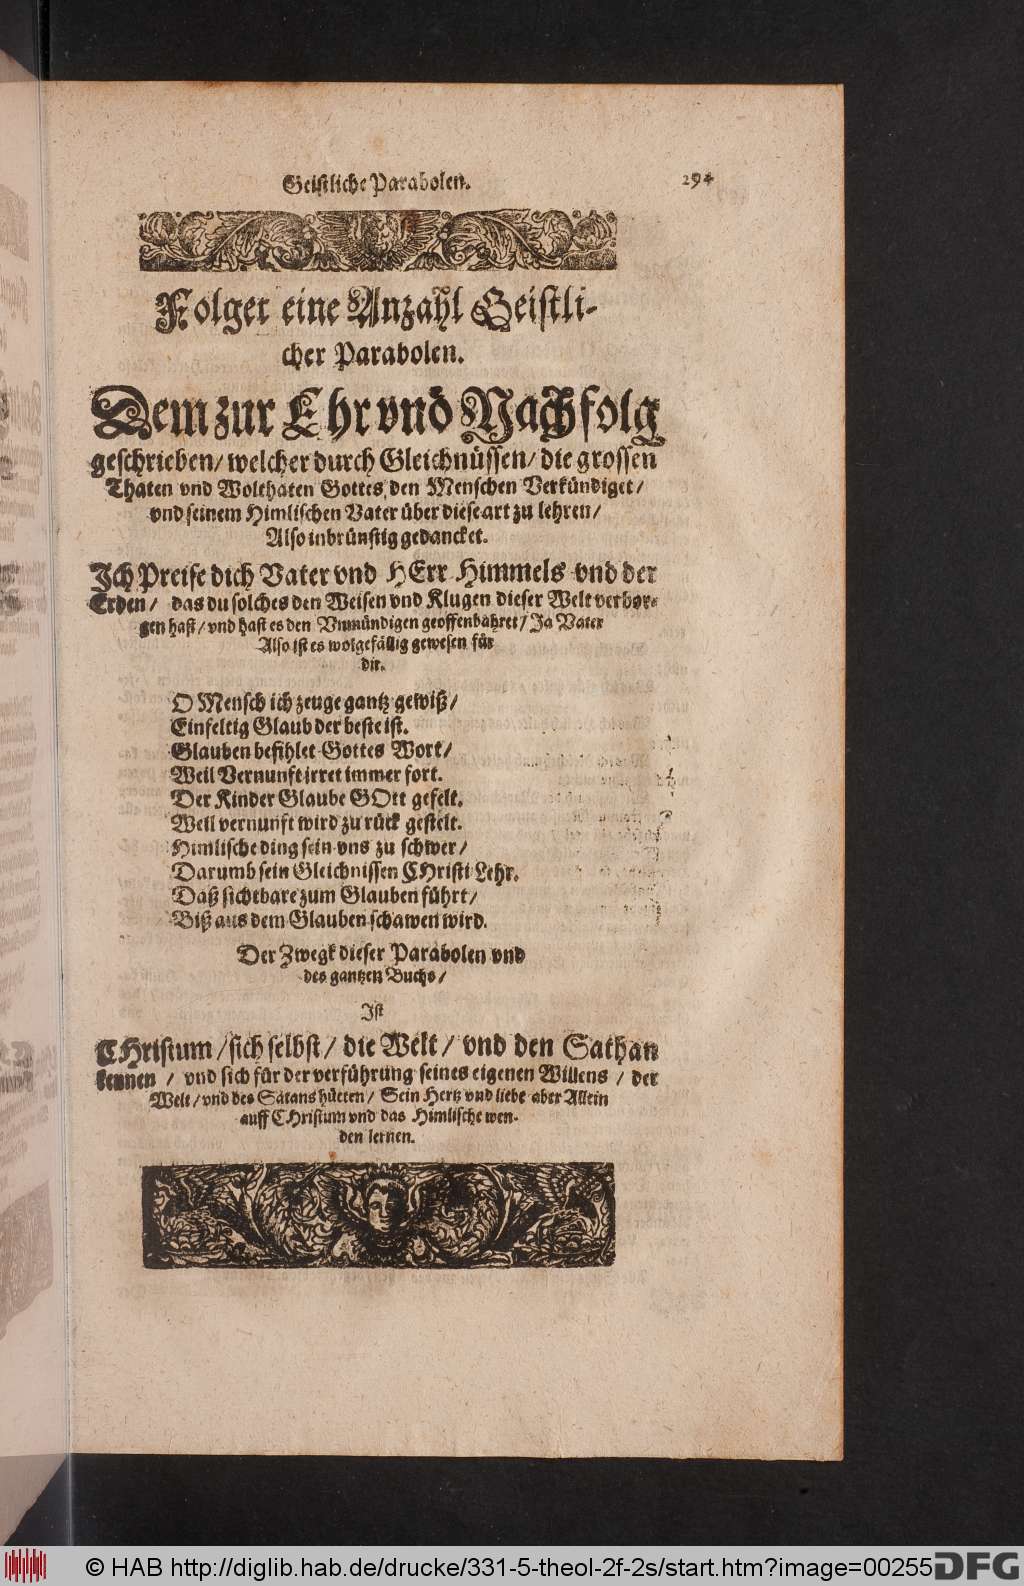 Geistliche Parabolen.
294
Folget eine Anzahl Geistli-
cher Parabolen.
Dem zur Ehr vnd Nachfolg
geschrieben/ welcher durch Gleichnüssen/ die grossen
Thaten vnd Wolthaten Gottes den Menschen Verkündiget/
vnd seinem Himlischen Vater über diese art zu lehren/
Also inbrünstig gedancket.
Ich Preise dich Vater vnd HErr Himmels vnd der
Erden/ das du solches den Weisen vnd Klugen dieser Welt verbor-
gen hast/ vnd hast es den Vnmündigen geoffenbahret/ Ja Vater
Also ist es wolgefällig gewesen für
dir.
O Mensch ich zeuge gantz gewiß/
Einfeltig Glaub der beste ist.
Glauben befihlet Gottes Wort/
Weil Vernunft irret immer fort.
Der Kinder Glaube GOtt gefelt.
Weil vernunft wird zu rück gestelt.
Himlische ding sein vns zu schwer/
Darumb sein Gleichnissen CHristi Lehr.
Daß sichtbare zum Glauben führt/
Biß aus dem Glauben schawen wird.
Der Zwegk dieser Parabolen vnd
des gantzen Buchs/
Ist
CHristum/ sich selbst/ die Welt/ vnd den Sathan
kennen/ vnd sich für der verführung seines eigenen Willens/ der
Welt/ vnd des Satans hütten/ Sein Hertz vnd liebe aber Allein
auff CHristum vnd das Himlische wen-
den lernen.
© HAB http://diglib.hab.de/drucke/331-5-theol-2f-2s/start.htm?image=00255
DFG